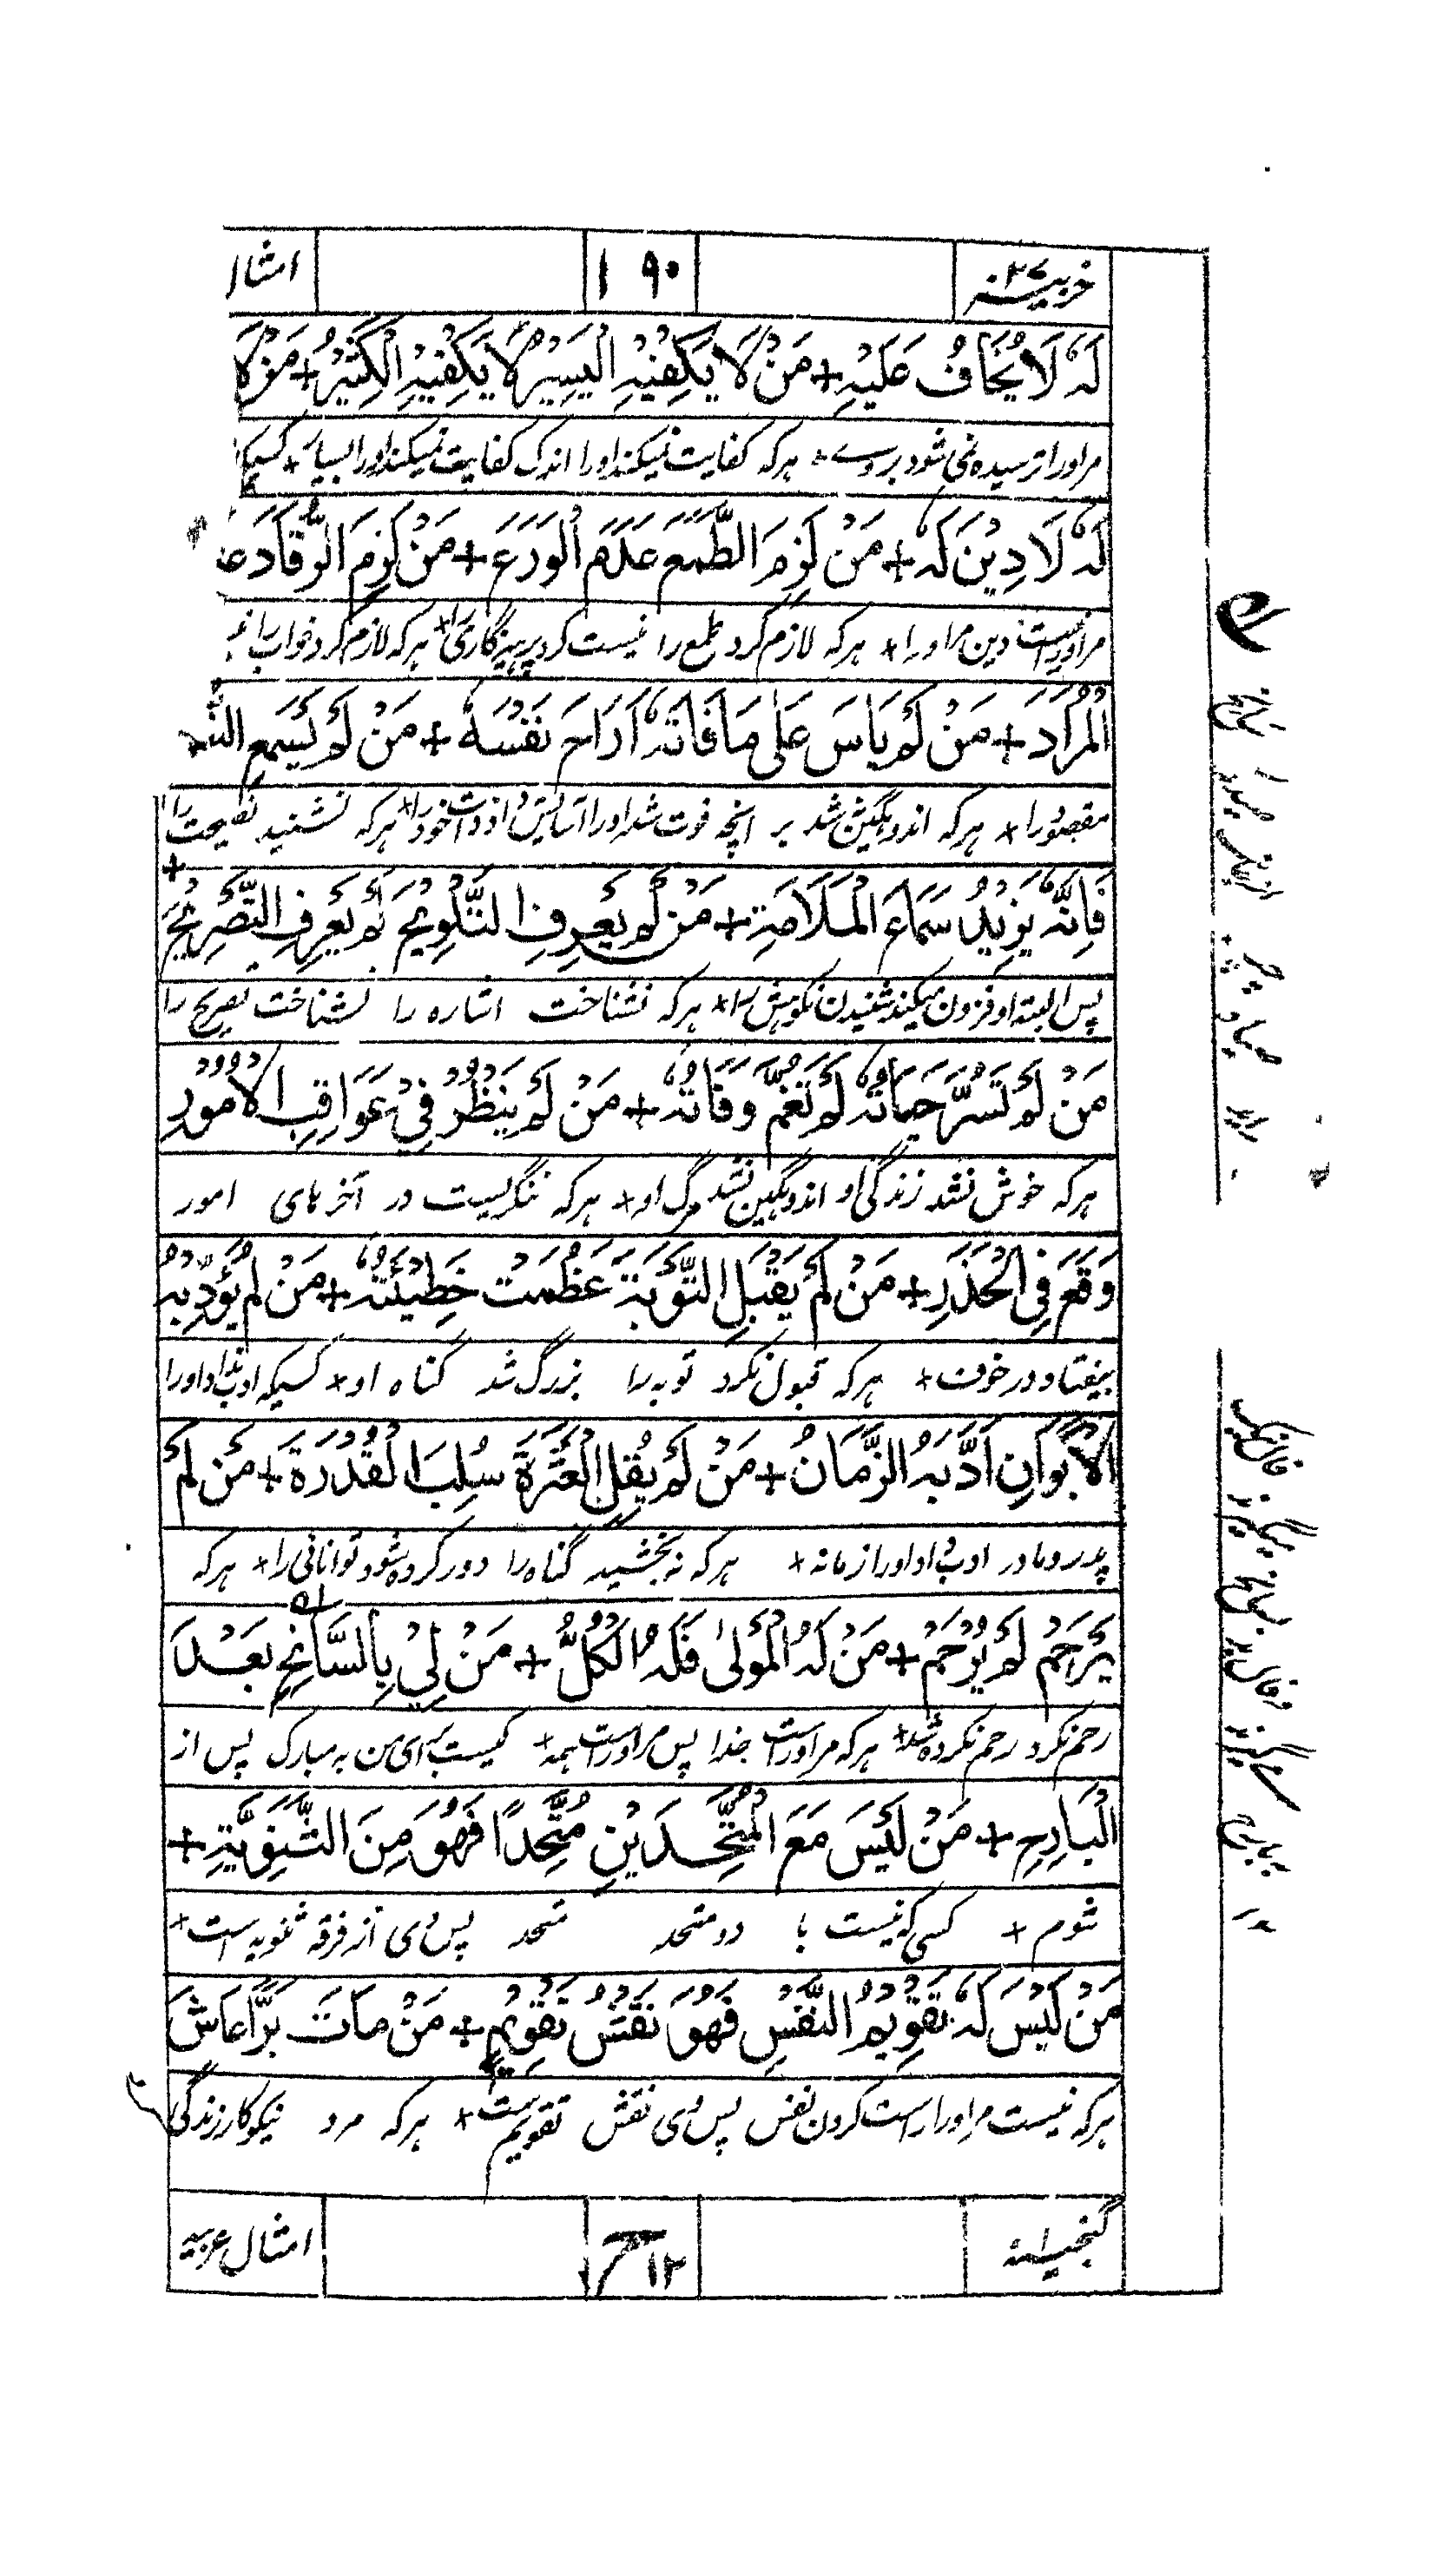 خزینه ۲ ۱۹۰ امثال
لَهٗ لَا يُخَافُ عَلَيْهِ + مَنْ لَا يَكْفِيْهِ الْيَسِيْرُ لَا يَكْفِيْهِ الْكَثِيْرُ + مَنْ لَا
مر او را ترسیده نمی شود بر وے + هرکه کفایت نمیکند او را اندک کفایت نمیکند او را بسیار + کسیکه
لَهٗ لَا دِيْنَ لَهٗ + مَنْ لَزِمَ الطَّمَعَ عَدَمَ الْوَرَعَ + مَنْ لَزِمَ الرُّقَادَ
مر او راست دین مر او را + هرکه لازم کرد طمع را نیست کرد پرهیزگاری را + هرکه لازم کرد خواب را
الْمُرَادَ + مَنْ لَمْ يَاسَ عَلٰى مَا فَاتَهٗ اَرَاحَ نَفْسَهٗ + مَنْ لَمْ يَسْمَعِ
مقصود را + هرکه اندوهگین نشد بر انچه فوت شد او را آسایش داد ذات خود را + هرکه نشنید نصیحت را +
فَاِنَّهٗ يَزِيْدُ سَمَاعَ الْمَلَامَةِ + مَنْ لَمْ يَعْرِفِ التَّلْوِيْحَ لَمْ يَعْرِفِ التَّصْرِيْحَ
پس البته او فزون میکند شنیدن نکوهش را + هرکه نشناخت اشاره را نشناخت تصریح را
مَنْ لَمْ تَسُرَّ حَيَاتُهٗ لَمْ تَغُمَّ وَفَاتُهٗ + مَنْ لَمْ يَنْظُرْ فِيْ عَوَاقِبِ الْاُمُوْرِ
هرکه خوش نشد زندگی او اندوهگین نشد مرگ او + هرکه ننگریست در آخرهای امور
وَقَعَ فِي الْحَذَرِ + مَنْ لَمْ يَقْبَلِ التَّوْبَةَ عَظُمَتْ خَطِيْئَتُهٗ + مَنْ لَمْ يُؤَدِّبْهُ
بیفتاد در خوف + هرکه قبول نکرد توبه را بزرگ شد گناه او + کسیکه ادب نداد او را
الْاَبَوَانِ اَدَّبَهُ الزَّمَانُ + مَنْ لَمْ يُقِلِ الْعَثْرَةَ سُلِبَ الْقُدْرَةَ + مَنْ لَمْ
پدر و مادر ادب داد او را زمانه + هرکه نه بخشید گناه را دور کرده شود توانائی را + هرکه
يَرْحَمْ لَمْ يُرْحَمْ + مَنْ لَهُ الْمَوْلٰى فَلَهُ الْكُلُّ + مَنْ لِيْ بِالسَّانِحِ بَعْدَ
رحم نکرد رحم نکرده شد + هرکه مر او راست خدا پس مر او راست همه + کیست برای من به مبارک پس از
الْبَارِحِ + مَنْ لَيْسَ مَعَ الْمُتَّحِدَيْنِ مُتَّحِدًا فَهُوَ مِنَ الثَّنَوِيَّةِ +
شوم + کسی که نیست با دو متحد متحد پس وی از فرقه ثنویه است +
مَنْ لَيْسَ لَهٗ تَقْوِيْمُ النَّفْسِ فَهُوَ نَقْشُ تَقْوِيْمٍ + مَنْ مَاتَ بَرًّا عَاشَ
هرکه نیست مر او را راست کردن نفس پس وی نقش تقویم است + هرکه مرد نیکوکار زندگی
گنجینه ۱ ۱۲ امثال عربیه